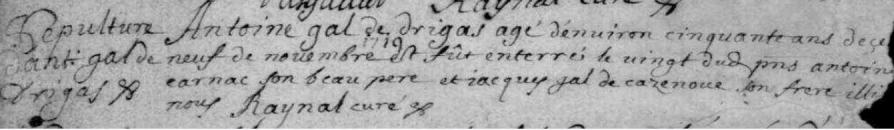 Raynal curé
Sepulture Antoine gal de drigas agé dénuiron cinquante ans decé
d'anti gal de neuf de novembre 1719 et fût enterré le vingt dud pns antoin
Drigas carnac son beau pere et iacques gal de cazenoue son frere illi
nous Raynal curé